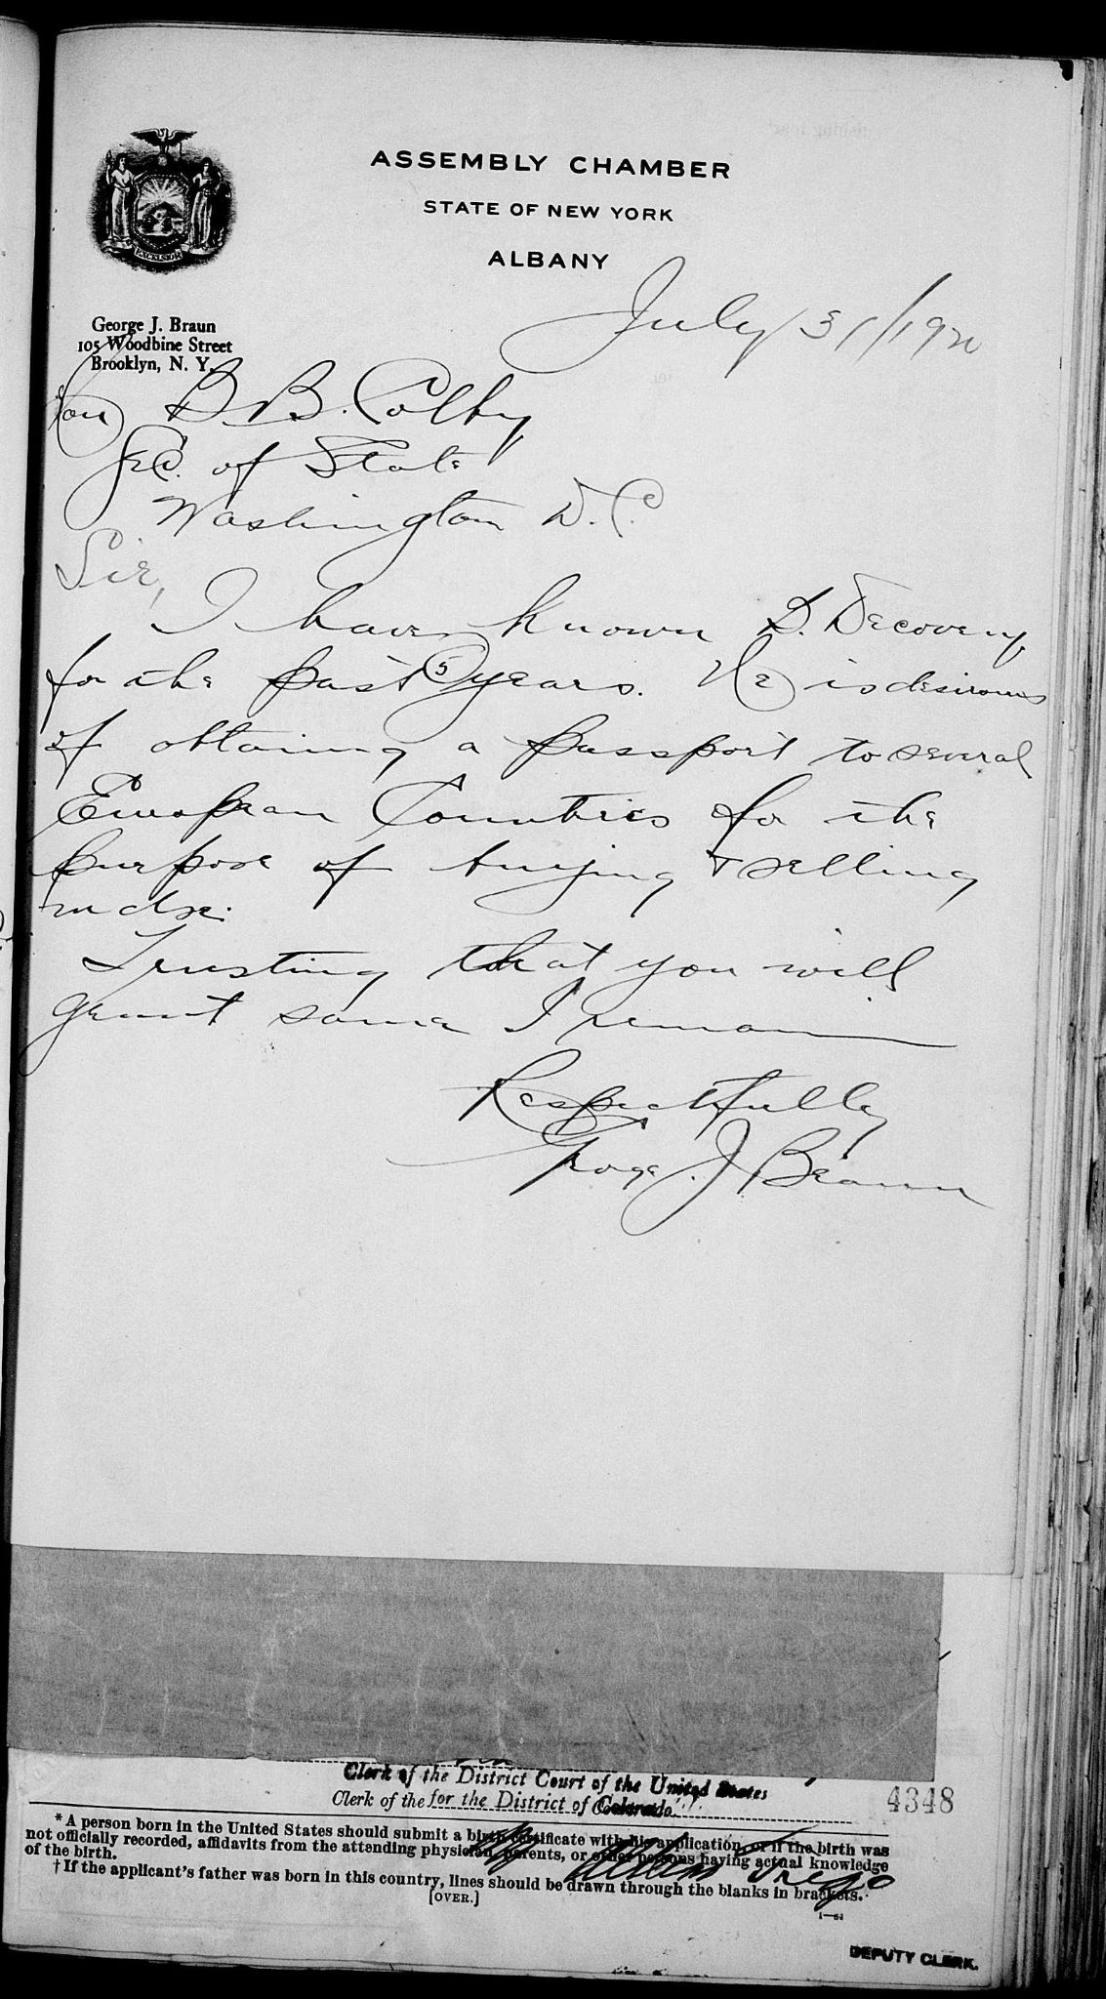 EXCELSIOR
ASSEMBLY CHAMBER
STATE OF NEW YORK
ALBANY
George J. Braun
105 Woodbine Street
Brooklyn, N. Y.
July 31/1920
Hon B. B. Colby
Sec. of State
Washington D. C.
Sir,
I have known D. Decoveny
for the past 5 years. He is desirous
of obtaining a passport to several
European Countries for the
purpose of buying & selling
mdse.
Trusting that you will
grant same I remain
Respectfully
George J. Braun
Clerk of the District Court of the United States
Clerk of the for the District of Colorado.
4348
* A person born in the United States should submit a birth certificate with his application, or if the birth was
not officially recorded, affidavits from the attending physician, parents, or other persons having actual knowledge
of the birth.
† If the applicant's father was born in this country, lines should be drawn through the blanks in brackets.
[OVER.]
DEPUTY CLERK.